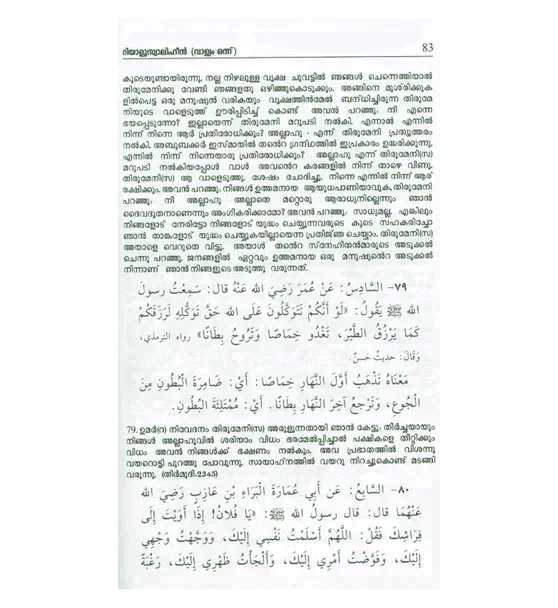 റിയാളുസ്സ്വാലിഹീൻ (വാള്യം ഒന്ന്) 83
കൂടെയുണ്ടായിരുന്നു. നല്ല നിഴലുള്ള വൃക്ഷ ചുവട്ടിൽ ഞങ്ങൾ ചെന്നെത്തിയാൽ
തിരുമേനിക്കു വേണ്ടി ഞങ്ങളതു ഒഴിഞ്ഞുകൊടുക്കും. അങ്ങിനെ മുശ്രിക്കുക
ളിൽപെട്ട ഒരു മനുഷ്യൻ വരികയും വൃക്ഷത്തിൻമേൽ ബന്ധിച്ചിരുന്ന തിരുമേ
നിയുടെ വാളെടുത്ത് ഊരിപ്പിടിച്ച് കൊണ്ട് അവൻ പറഞ്ഞു. നീ എന്നെ
ഭയപ്പെടുന്നോ? ഇല്ലായെന്ന് തിരുമേനി മറുപടി നൽകി. എന്നാൽ എന്നിൽ
നിന്ന് നിന്നെ ആർ പ്രതിരോധിക്കും? അല്ലാഹു - എന്ന് തിരുമേനി പ്രത്യുത്തരം
നൽകി. അബൂബക്കർ ഇസ്മായിൽ തൻെറ ഗ്രന്ഥത്തിൽ ഇപ്രകാരം ഉദ്ധരിക്കുന്നു.
എന്നിൽ നിന്ന് നിന്നെയാരു പ്രതിരോധിക്കും? അല്ലാഹു എന്ന് തിരുമേനി(സ)
മറുപടി നൽകിയപ്പോൾ വാൾ അവൻെറ കരങ്ങളിൽ നിന്ന് താഴെ വീണു.
തിരുമേനി(സ) ആ വാളെടുത്തു. ശേഷം ചോദിച്ചു. നിന്നെ എന്നിൽ നിന്ന് ആര്
രക്ഷിക്കും. അവൻ പറഞ്ഞു: നിങ്ങൾ ഉത്തമനായ ആയുധപാണിയാവുക. തിരുമേനി
പറഞ്ഞു: നീ അല്ലാഹു അല്ലാതെ മറ്റൊരു ആരാധ്യനില്ലെന്നും ഞാൻ
ദൈവദൂതനാണെന്നും അംഗീകരിക്കാമോ? അവൻ പറഞ്ഞു: സാധ്യമല്ല. എങ്കിലും
നിങ്ങളോട് നേരിട്ടോ നിങ്ങളോട് യുദ്ധം ചെയ്യുന്നവരുടെ കൂടെ സഹകരിച്ചോ
ഞാൻ താങ്കളോട് യുദ്ധം ചെയ്യുകയില്ലായെന്ന പ്രതിജ്ഞ ചെയ്യാം. തിരുമേനി(സ)
അയാളെ വെറുതെ വിട്ടു. അയാൾ തൻെറ സ്നേഹിതൻമാരുടെ അടുക്കൽ
ചെന്നു പറഞ്ഞു. ജനങ്ങളിൽ ഏറ്റവും ഉത്തമനായ ഒരു മനുഷ്യൻെറ അടുക്കൽ
നിന്നാണ് ഞാൻ നിങ്ങളുടെ അടുത്തു വരുന്നത്.
٧٩– السَّادِسُ: عَنْ عُمَرَ رَضِيَ الله عَنْهُ قال: سَمِعْتُ رسولَ
الله ﷺ يَقُولُ: «لَوْ أَنَّكُمْ تَتَوَكَّلُونَ عَلَى الله حَقَّ تَوَكُّلِهِ لَرَزَقَكُمْ
كَمَا يَرْزُقُ الطَّيْرَ، تَغْدُو خِمَاصًا وَتَرُوحُ بِطَانًا» رواه الترمذي،
وَقَالَ: حديثٌ حَسَنٌ.
مَعْنَاهُ تَذْهَبُ أَوَّلَ النَّهَارِ خِمَاصًا: أَيْ: ضَامِرَةَ الْبُطُونِ مِنَ
الْجُوعِ، وَتَرْجِعُ آخِرَ النَّهَارِ بِطَانًا. أَيْ: مُمْتَلِئَةَ الْبُطُونِ.
79. ഉമർ(റ) നിവേദനം തിരുമേനി(സ) അരുളുന്നതായി ഞാൻ കേട്ടു: തീർച്ചയായും
നിങ്ങൾ അല്ലാഹുവിൽ ശരിയാം വിധം ഭരമേൽപ്പിച്ചാൽ പക്ഷികളെ തീറ്റിക്കും
വിധം അവൻ നിങ്ങൾക്ക് ഭക്ഷണം നൽകും. അവ പ്രഭാതത്തിൽ വിശന്നു
വയറൊട്ടി പുറത്തു പോവുന്നു. സായാഹ്നത്തിൽ വയറു നിറച്ചുകൊണ്ട് മടങ്ങി
വരുന്നു. (തിർമുദി:2345)
٨٠– السَّابِعُ: عَن أَبِي عُمَارَةَ الْبَرَاءِ بْنِ عَازِبٍ رَضِيَ الله
عَنْهُمَا قال: قال رسولُ الله ﷺ: «يَا فُلَانُ! إِذَا أَوَيْتَ إِلَى
فِرَاشِكَ فَقُلْ: اللَّهُمَّ أَسْلَمْتُ نَفْسِي إِلَيْكَ، وَوَجَّهْتُ وَجْهِي
إِلَيْكَ، وَفَوَّضْتُ أَمْرِي إِلَيْكَ، وَأَلْجَأْتُ ظَهْرِي إِلَيْكَ، رَغْبَةً